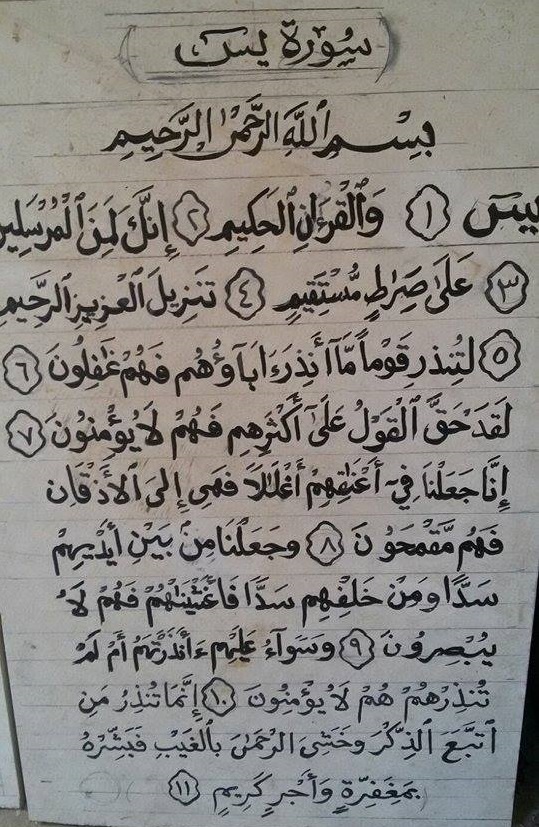 (سُورَة يس)
بِسْمِ ٱللَّهِ ٱلرَّحْمَٰنِ ٱلرَّحِيمِ
يسٓ ١ وَٱلْقُرْءَانِ ٱلْحَكِيمِ ٢ إِنَّكَ لَمِنَ ٱلْمُرْسَلِينَ
٣ عَلَىٰ صِرَٰطٍ مُّسْتَقِيمٍ ٤ تَنزِيلَ ٱلْعَزِيزِ ٱلرَّحِيمِ
٥ لِتُنذِرَ قَوْمًا مَّآ أُنذِرَ ءَابَآؤُهُمْ فَهُمْ غَٰفِلُونَ ٦
لَقَدْ حَقَّ ٱلْقَوْلُ عَلَىٰٓ أَكْثَرِهِمْ فَهُمْ لَا يُؤْمِنُونَ ٧
إِنَّا جَعَلْنَا فِىٓ أَعْنَٰقِهِمْ أَغْلَٰلًا فَهِىَ إِلَى ٱلْأَذْقَانِ
فَهُم مُّقْمَحُونَ ٨ وَجَعَلْنَا مِنۢ بَيْنِ أَيْدِيهِمْ
سَدًّا وَمِنْ خَلْفِهِمْ سَدًّا فَأَغْشَيْنَٰهُمْ فَهُمْ لَا
يُبْصِرُونَ ٩ وَسَوَآءٌ عَلَيْهِمْ ءَأَنذَرْتَهُمْ أَمْ لَمْ
تُنذِرْهُمْ هُمْ لَا يُؤْمِنُونَ ١٠ إِنَّمَا تُنذِرُ مَنِ
ٱتَّبَعَ ٱلذِّكْرَ وَخَشِىَ ٱلرَّحْمَٰنَ بِٱلْغَيْبِ فَبَشِّرْهُ
بِمَغْفِرَةٍ وَأَجْرٍ كَرِيمٍ ١١